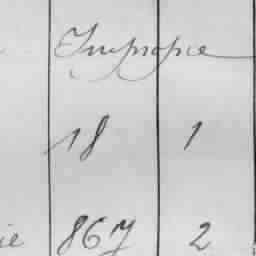 Impropre
18 1
ie 867 2